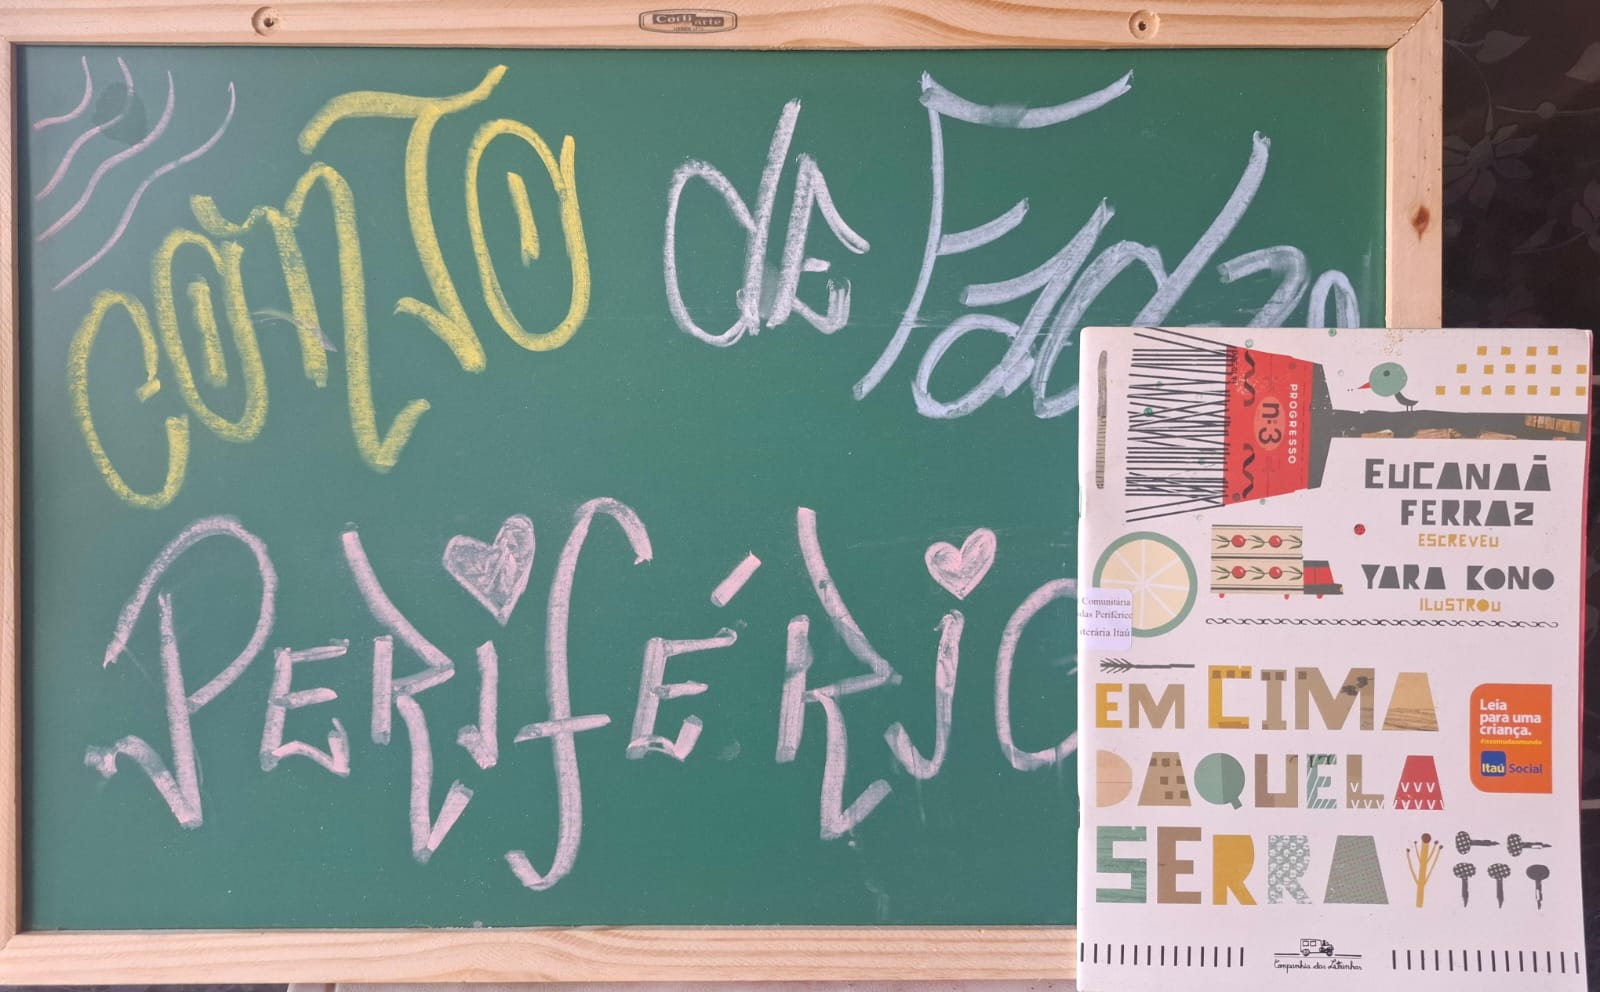 Cortiarte
CONTO dE
PERIFÉRIC
PROGRESSO
nº3
EUCANAÃ
FERRAZ
ESCREVEU
YARA KONO
ILUSTROU
Comunitária
das Periférico
Itaú
EM CIMA
DAQUELA
SERRA
Leia
para uma
criança.
#issomudaomundo
Itaú Social
Companhia das Letrinhas